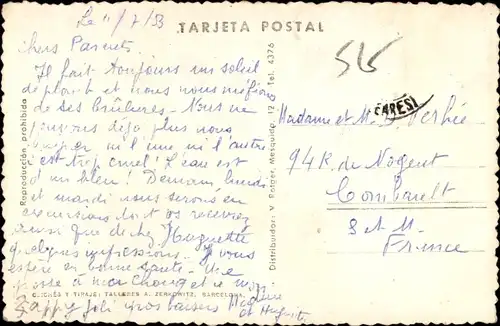 TARJETA POSTAL
Le 11/7/53
Chers Parents
Il fait toujours un soleil
de plomb et nous nous méfions
de ses brûlures - Nous ne
pouvons déjà plus nous
baigner ni l'une ni l'autre
c'est trop cruel ! L'eau est
d'un bleu ! Demain, lundi
et mardi nous serons en
excursions dont vous recevrez
ainsi que de chez Huguette
quelques impressions. Je vous
espère en bonne santé. Une
grosse à mon et à mon
gros baisers Madame
et Huguette
CLICHÉS Y TIRAJE: TALLERES A. ZERKOWITZ, BARCELONA.
Reproducción prohibida
Distribuidor: V. Rotger, Mesquida, 12 Tel. 4376
Madame et M.
94 R. de Nogent
Combault
S et M.
France